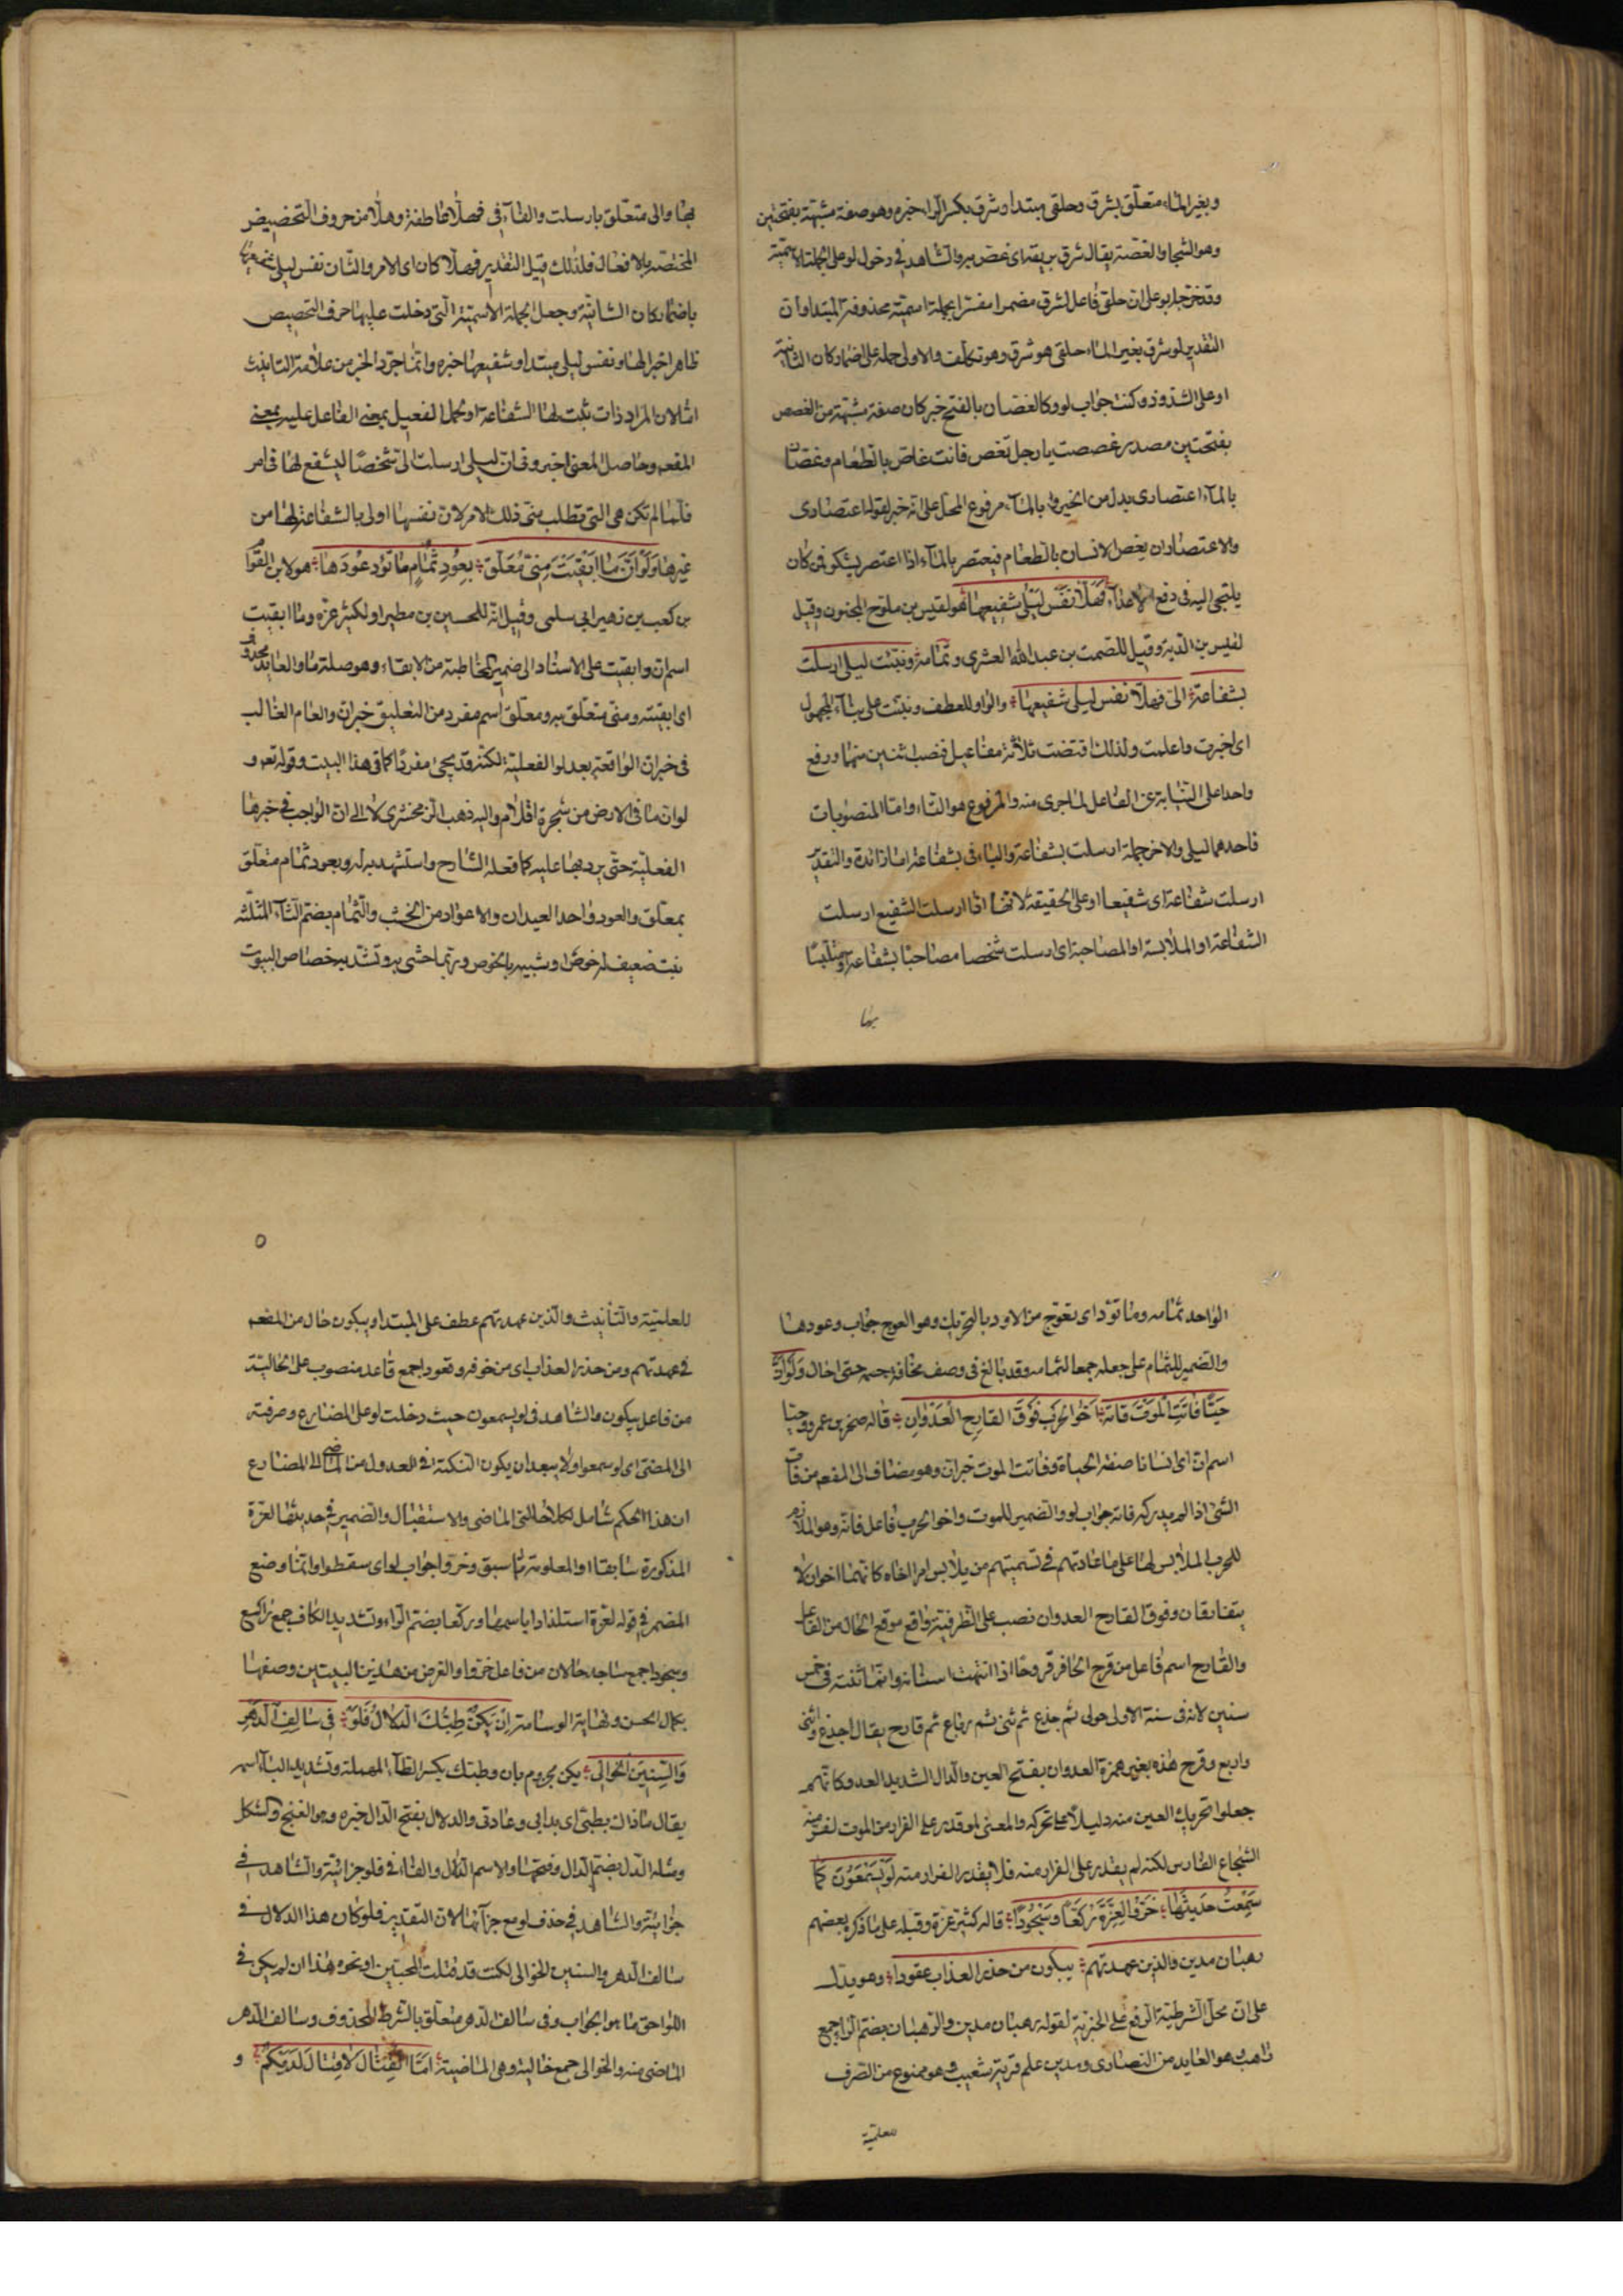 وبغير الماء متعلق بشرق وحلقى مبتدا وشرق بكسر الراء خبره وهو صفة مشبهة بفتحتين
وهو الشجا والغصة يقال شرق بريقه اى غص به والشاهد فى دخول لو على الجملة الاسمية
وقد خرجه ابو على ان حلقى فاعل لشرق مضمرا مفسرا بجملة اسمية محذوفة المبتدا وان
التقدير لو شرق بغير الماء حلقى هو شرق وهو تكلف والاولى حمله على اضمار كان الشانية
او على الشذوذ وكنت جواب لو وكالغصان بالفتح خبر كان صفة مشبهة من الغصص
بفتحتين مصدر غصصت يا رجل تغص فانت غاص بالطعام وغصان
بالماء اعتصارى بدل من الخبر و بالماء مرفوع المحل على انه خبر لقوله اعتصارى
والاعتصار ان يغص الانسان بالطعام فيعتصر بالماء اذا اعتصر يشكو فمن كان
يلتجى اليه فى دفع الاعداء فهلا نفس ليلى شفيعها هو لقيس بن ملوح المجنون وقيل
لقيس بن الذريح وقيل للصمت بن عبد الله العشرى وتمامه ونبئت ليلى ارسلت
بشفاعة الى فهلا نفس ليلى شفيعها والواو للعطف ونبئت على بناء المجهول
اى اخبرت واعلمت ولذلك اقتضت ثلاثة مفاعيل فنصب اثنين منها ورفع
واحدا على النيابة عن الفاعل لما جرى منه والمرفوع هو التاء واما المنصوبات
فاحدهما ليلى والاخر جملة ارسلت بشفاعة والباء فى بشفاعة اما زائدة والتقدير
ارسلت شفاعة اى شفيعا او على الحقيقة لانها اذا ارسلت الشفيع ارسلت
الشفاعة او الملابسة او المصاحبة اى ارسلت شخصا مصاحبا بشفاعة او متلبسا
بها
بها والى متعلق بارسلت والفاء فى فهلا عاطفة وهلا من حروف التحضيض
المختصة بالافعال فلذلك قيل التقدير فهلا كان اى الامر والشان نفس ليلى شفيعها
باضمار كان الشانية وجعل الجملة الاسمية التى دخلت عليها حرف التحضيض
ظاهرا خبرا لها ونفس ليلى مبتدا وشفيعها خبره وانما جرد الخبر من علامة التانيث
اما لان المراد ذات ثبت لها الشفاعة او لحمل الفعيل بمعنى الفاعل عليه بمعنى
المفعه وحاصل المعنى اخبرونى ان ليلى ارسلت الى شخصا ليشفع لها فى امر
فلما لم تكن هى التى تطلب منى ذلك الامر لان نفسها اولى بالشفاعة لها من
غيرها ولو ان ما ابقيت منى معلق بعود ثمام ما تاود عودها هو لابن القوا
بن كعب بن زهير ابى سلمى وقيل انه للحسين بن مطير او لكثير عزة وما ابقيت
اسم ان وابقيت على الاسناد الى ضمير المخاطبة من الابقاء وهو صلة ما والعايد محذوف
اى ابقيته ومنى متعلق به ومعلق اسم مفرد من التعليق خبر ان والعام الغالب
فى خبر ان الواقعة بعد لو الفعلية لكنه قد يجى مفردا كما فى هذا البيت وقوله تعه و
لو ان ما فى الارض من شجرة اقلام واليه ذهب الزمخشرى لا الى ان الواجب فى خبرها
الفعلية حتى يرد بها عليه كما فعله الشارح واستشهد به له وبعود ثمام متعلق
بمعلق والعود واحد العيدان والاعواد من الخشب والثمام بضم الثاء المثلثه
نبت ضعيف له خوص او شبيه بالخوص وربما حشى به وتشد به خصاص البيوت
الواحد ثمامه وما تؤد اى تعوج من الاود بالتحريك وهو العوج جواب وعودها
والضمير للثمام على جعله جمعا لثمامه وقد بالغ فى وصف نحافة جسمه حتى احال ولو ان
حيا فائت الموت فاته اخو الحرب فوق القارح العدوان قاله صخر بن عمرو وحيا
اسم ان اى انسانا صفة الحياة وفائت الموت خبر ان وهو مضاف الى المفعه من فات
الشئ اذا لم يدركه فاته جواب لو والضمير للموت واخو الحرب فاعل فاته وهو الملازم
للحرب الملابس لها على ما عادتهم فى تسميتهم من يلابس امرا اخاه كانهما اخوان لا
يتفارقان وفوق القارح العدوان نصب على الظرفية واقع موقع الحال من الفاعل
والقارح اسم فاعل من قرح الحافر قروحا اذا انتهت اسنانه وانما تنته فى خمس
سنين لانه فى سنة الاولى حولى ثم جذع ثم ثنى ثم رباع ثم قارح يقال اجذع واثنى
واربع وقرح هذه بغير همزة العدوان بفتح العين والدال الشديد العدو كانهم
جعلوا تحريك العين منه دليلا على تحركه والمعنى لو قدر على الفرار من الموت لفر منه
الشجاع الفارس لكنه لم يقدر على الفرار منه فلا يقدر الفرار منه لو يسمعون كما
سمعت حديثها خروا لعزة ركعا وسجودا قاله كثير عزة وقبله على ما ذكره بعضهم
رهبان مدين والذين عهدتهم يبكون من حذر العذاب عقودا وهو يدل
على ان محل الشرطية الرفع على الخبرية لقوله رهبان مدين والرهبان بضم الراء جمع
راهب وهو العابد من النصارى ومدين علم قرية شعيب وهو ممنوع من الصرف
للعلمية
٥
للعلمية والتأنيث والذين عهدتهم عطف على المبتدا ويبكون حال من المفعه
فى عهدتهم ومن حذر العذاب اى من خوفه وقعودا جمع قاعد منصوب على الحالية
من فاعل يبكون والشاهد فى لو يسمعون حيث دخلت لو على المضارع وصرفته
الى المضى اى لو سمعوا ولا يبعد ان يكون النكتة فى العدول من الماضى الى المضارع
ان هذا الحكم شامل لكلا حالتى الماضى والاستقبال والضمير فى حديثها لعزة
المذكورة سابقا او المعلومة مما سبق وخروا جواب لو اى سقطوا وانما وضع
المضمر فى قوله لعزة استلذاذا باسمها وركعا بضم الراء وتشديد الكاف جمع راكع
وسجودا جمع ساجد حالان من فاعل خروا والغرض من هذين البيتين وصفها
بكمال الحسن ونهاية الوسامة ان يكن طبك الدلال فلو فى سالف الدهر
والسنين الخوالى يكن مجزوم بان وطبك بكسر الطاء المهملة وتشديد الباء اسمه
يقال ما ذاك بطبى اى بدابى وعادتى والدلال بفتح الدال خبره وهو الغنج والشكل
ومثله الدل بضم الدال وفتحها والاسم الدال والفاء فى فلو جزائية والشاهد فى
جزائية والشاهد فى حذف لو مع جزائها لان التقدير فلو كان هذا الدلال فى
سالف الدهر والسنين الخوالى لكنت قد قتلت المحبين او نحوه هذا ان لم يكن فى
اللواحق ما هو الجواب وفى سالف الدهر متعلق بالشرط المحذوف وسالف الدهر
الماضى منه والخوالى جمع خالية وهى الماضية اما القتال لا قتال لديكم و